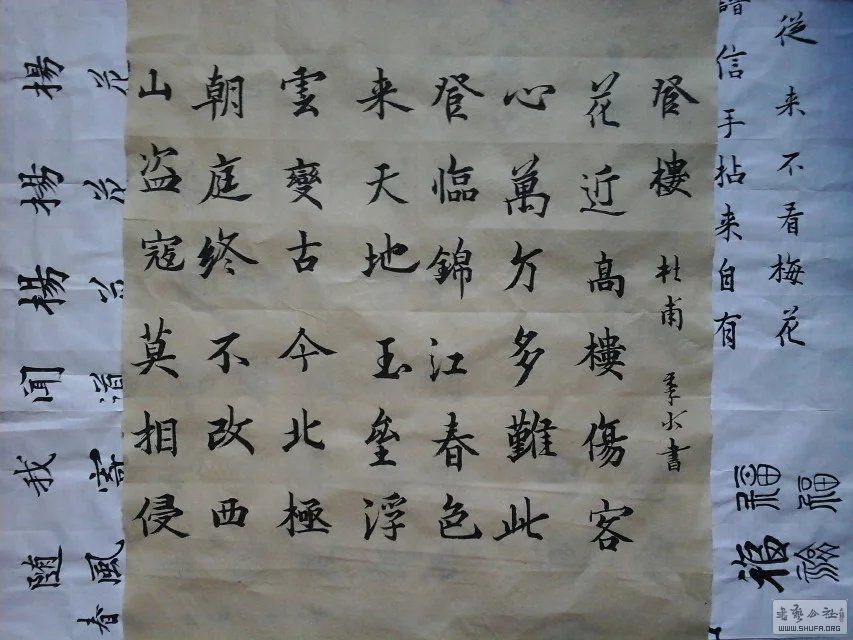 從来不看梅花
譜信手拈来自有
福福
福福
登樓 杜甫 季水書
花近高樓傷客
心萬方多難此
登臨錦江春色
来天地玉壘浮
雲變古今北極
朝庭終不改西
山盗寇莫相侵
花花道寄風
揚揚揚闻我随春
WWW.SHUFA.ORG